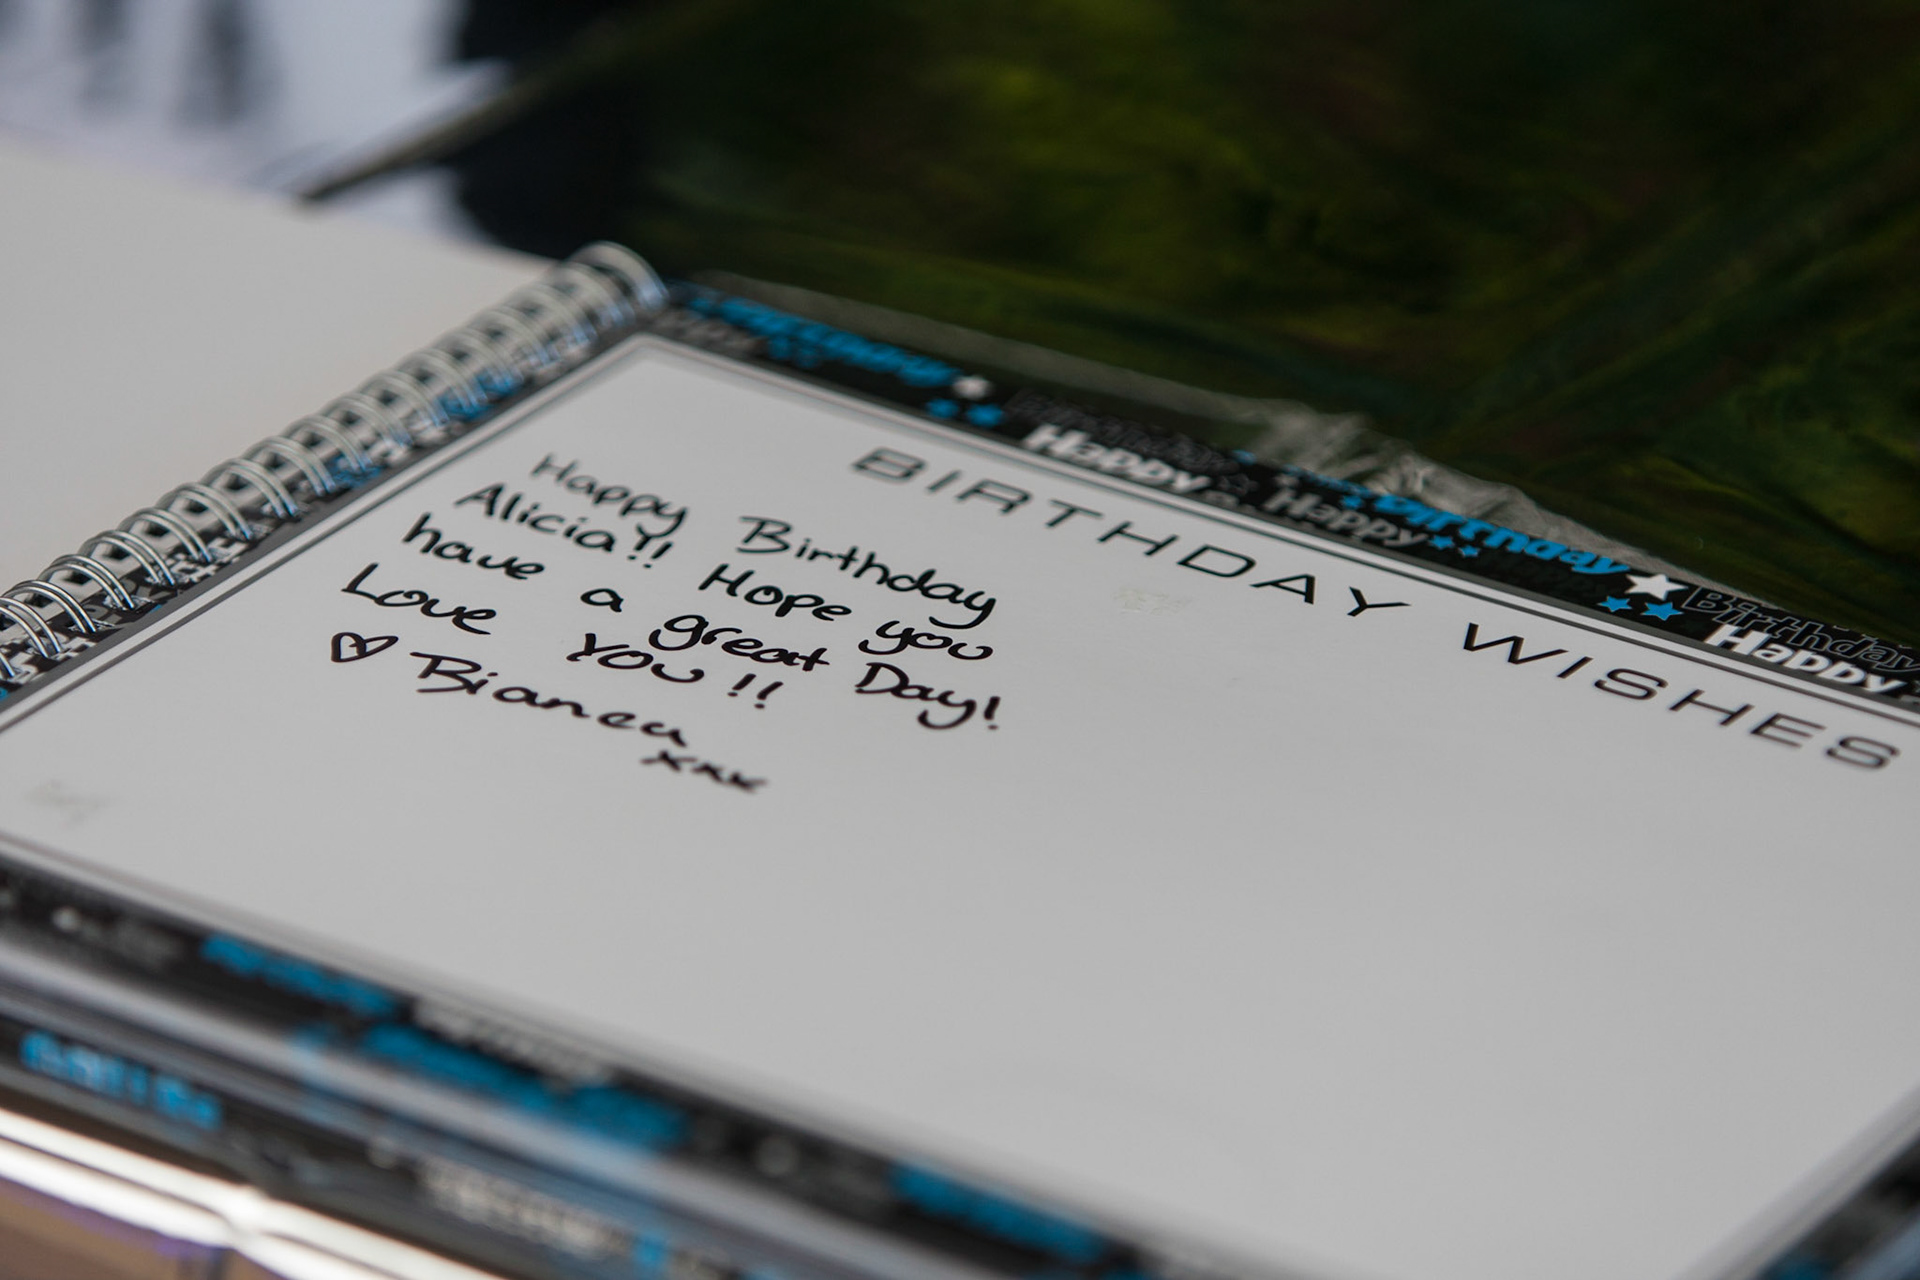 BIRTHDAY WISHES
Happy Birthday
Alicia!! Hope you
have a great Day!
Love You!!
♡ Bianca
xxx
Happy
Happy
Birthday
Birthday
Happy